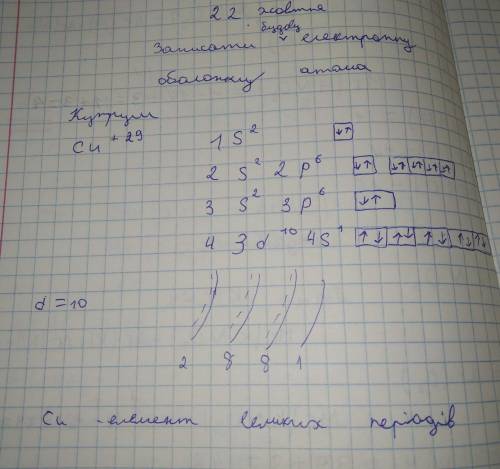 22 жовтня
будову
Записати електронну
оболонку атома
Купрум
Cu +29
1 S²
2 S² 2 p⁶
3 S² 3 p⁶
4 3 d¹⁰ 4S¹
d = 10
2 8 8 1
Cu - елемент великих періодів